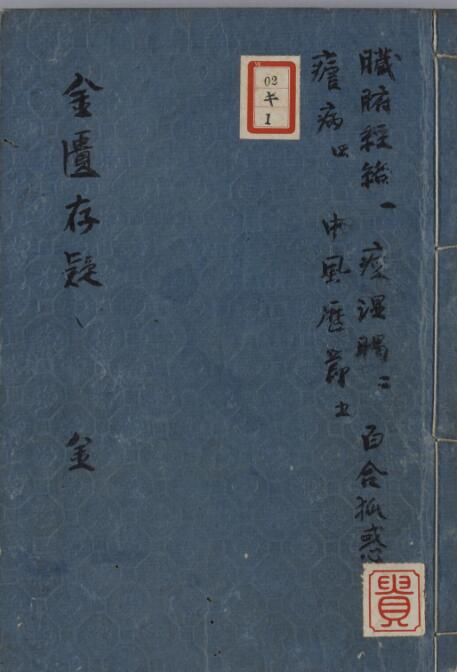 臓腑經絡一 痙湿暍二 百合狐惑
瘧病四 中風歴節五
02
キ
1
貴
金匱存疑 金